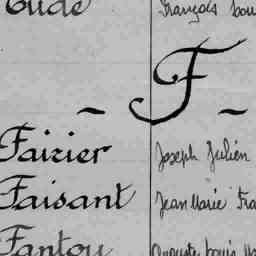 Eude François Lou
~ F ~
Fairier Joseph Julien
Faisant Jean Marie Fra
Fantou Auguste Louis Ma